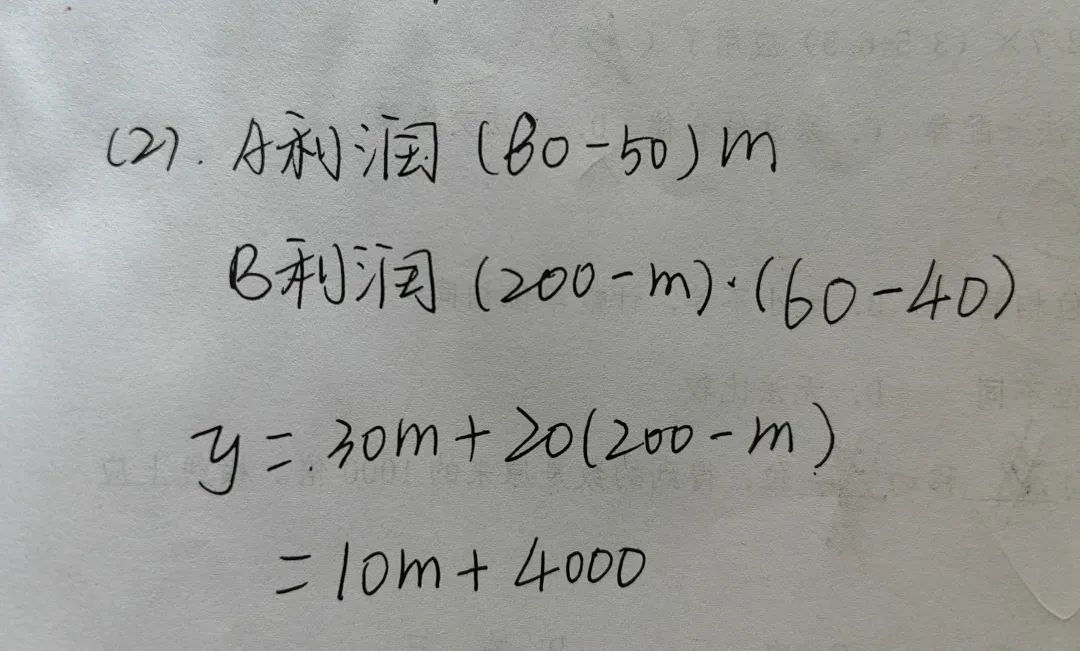 (2). A利润 (80-50)m
B利润 (200-m)·(60-40)
y=30m+20(200-m)
=10m+4000